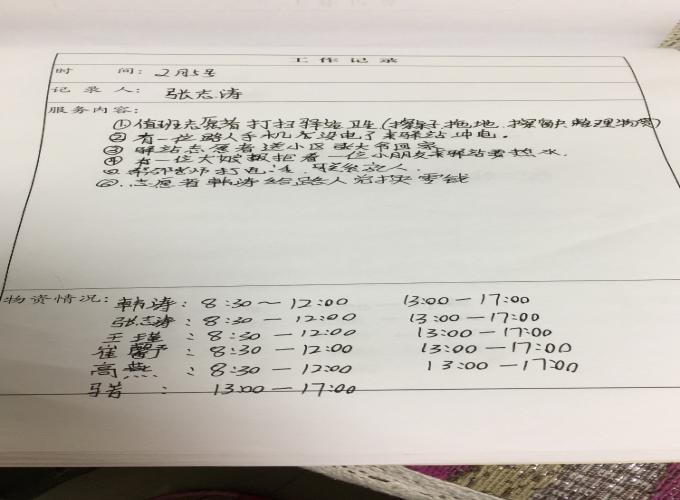 工作记录
时 间: 2月5号
记录人: 张志涛
服务内容:
①值班志愿者打扫驿站卫生(擦桌子拖地 擦窗户整理物资)
②有一些路人手机没电了来驿站冲电。
③驿站志愿者送小区张大爷回家
④有一位大姐领抱着一位小朋友来驿站要热水.
打电话 联系家人.
⑥.志愿者韩涛给路人兑换零钱
物资情况: 韩涛: 8:30~12:00 13:00-17:00
张志涛: 8:30-12:00 13:00-17:00
王瑾: 8:30-12:00 13:00-17:00
崔馨予: 8:30-12:00 13:00-17:00
高燕: 8:30-12:00 13:00-17:00
: 13:00-17:00